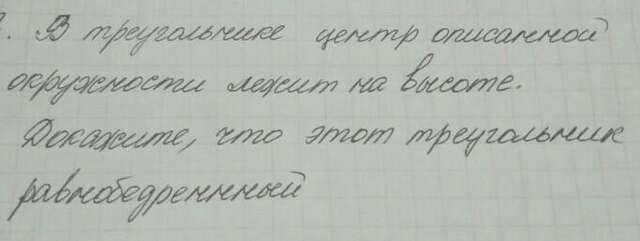 В треугольнике центр описанной
окружности лежит на высоте.
Докажите, что этот треугольник
равнобедренный